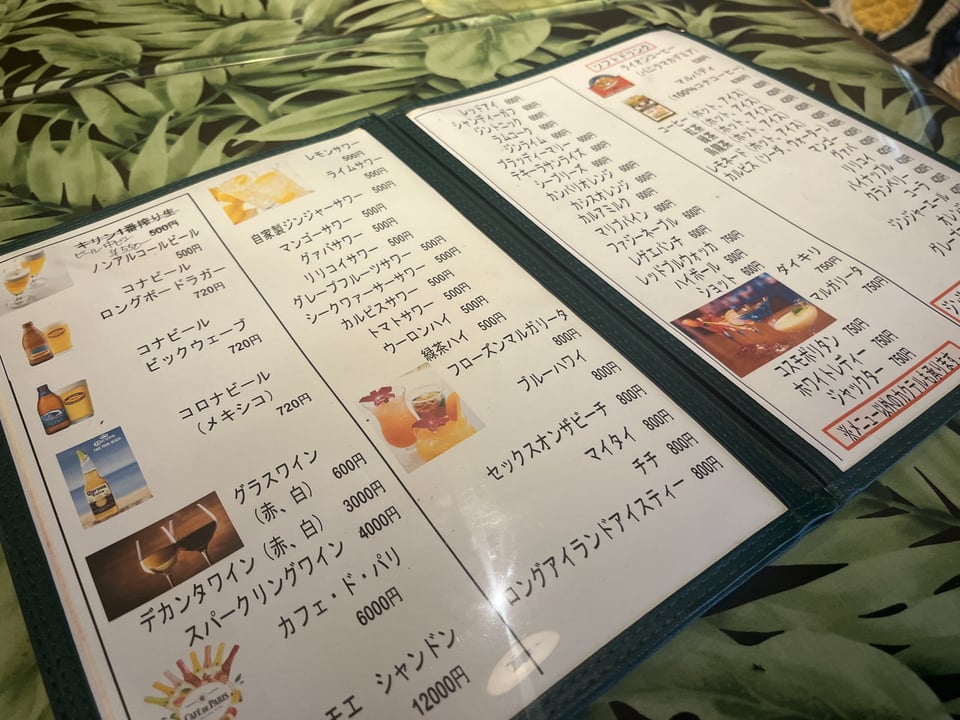 キリン1番搾り生
500円
ビール 中ビン
¥550
ノンアルコールビール
500円
コナビール
ロングボードラガー
720円
コナビール
ビックウェーブ
720円
コロナビール
（メキシコ）
720円
グラスワイン
（赤、白） 600円
デカンタワイン（赤、白） 3000円
スパークリングワイン 4000円
カフェ・ド・パリ
6000円
CAFÉ DE PARIS
シャンドン
12000円
レモンサワー
500円
ライムサワー
500円
自家製ジンジャーサワー
500円
マンゴーサワー
500円
グァバサワー
500円
リリコイサワー
500円
グレープフルーツサワー
500円
シークヮァーサーサワー
500円
カルピスサワー
500円
トマトサワー
500円
ウーロンハイ
500円
緑茶ハイ 500円
フローズンマルガリータ
800円
ブルーハワイ
800円
セックスオンザビーチ
800円
マイタイ 800円
チチ 800円
ロングアイランドアイスティー 800円
レッドアイ 600円
シャンディーガフ 600円
ジントニック 600円
ラムコーク 600円
ジンライム 600円
ブラッディーマリー 600円
テキーラサンライズ
シーブリーズ 600円
カンパリオレンジ 600円
カシスオレンジ 600円
カルアミルク 600円
マリブパイン 600円
ファジーネーブル 600円
レゲエパンチ 600円
レッドブルウォッカ 750円
ハイボール 500円
ショット 600円
ダイキリ
750円
マルガリータ
750円
コスモポリタン 750円
ホワイトレディー 750円
ジャックター 750円
※メニュー以外のカクテルも承ります
ソフトドリンク
ライオンコーヒー
（バニラマカデミア）
マルバディ
（100％コナコーヒー）
コーヒー（ホット、アイス）
紅茶（ホット、アイス）
緑茶（ホット、アイス）
烏龍茶（ホット、アイス）
レモネード（ホット、アイス）
カルピス（ソーダ、ウォーター）
マンゴー
グァバ
リリコイ
パイナップル
クランベリー
コーラ
ジンジャーエール